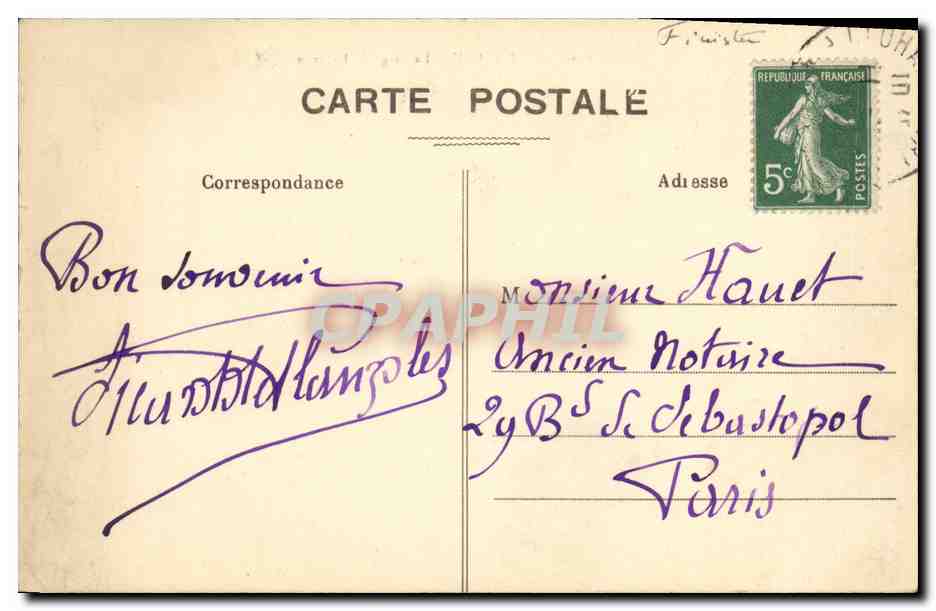 Finister
CARTE POSTALE
REPUBLIQUE FRANÇAISE
5c
POSTES
Correspondance
Adresse
Bon souvenir
Monsieur Hauet
Ancien Notaire
29 Bd de Sebastopol
Paris
CPAPHIL